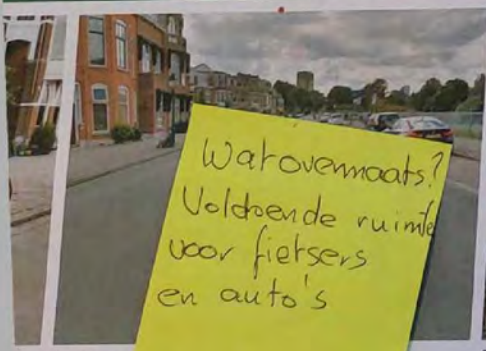 Wat overmaats?
Voldoende ruimte
voor fietsers
en auto's